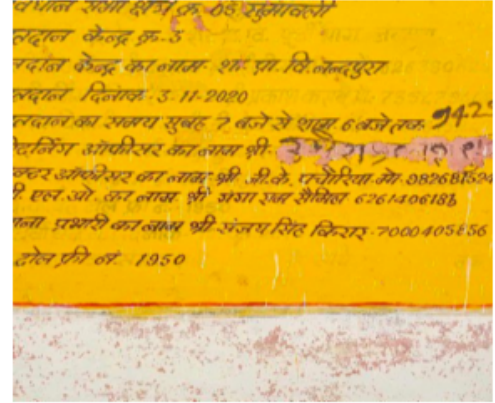 विधान सभा क्षेत्र क्र. 05 सुमावली
तदान केन्द्र क्र-3
तदान केन्द्र का नाम- शा. प्रा. वि. नन्दपुरा
तदान दिनांक- 3-11-2020
तदान का समय सुबह 7 बजे से शाम 6 बजे तक 942
टर्निंग ऑफीसर का नाम श्री
क्टर ऑफीसर का नाम श्री जी.के. पचौरिया मो. 982681524
ी. एल. ओ. का नाम श्री गंगा राम सैमिल 6261406188
ाना प्रभारी का नाम श्री संजय सिंह किरार-7000405856
टोल फ्री नं. 1950